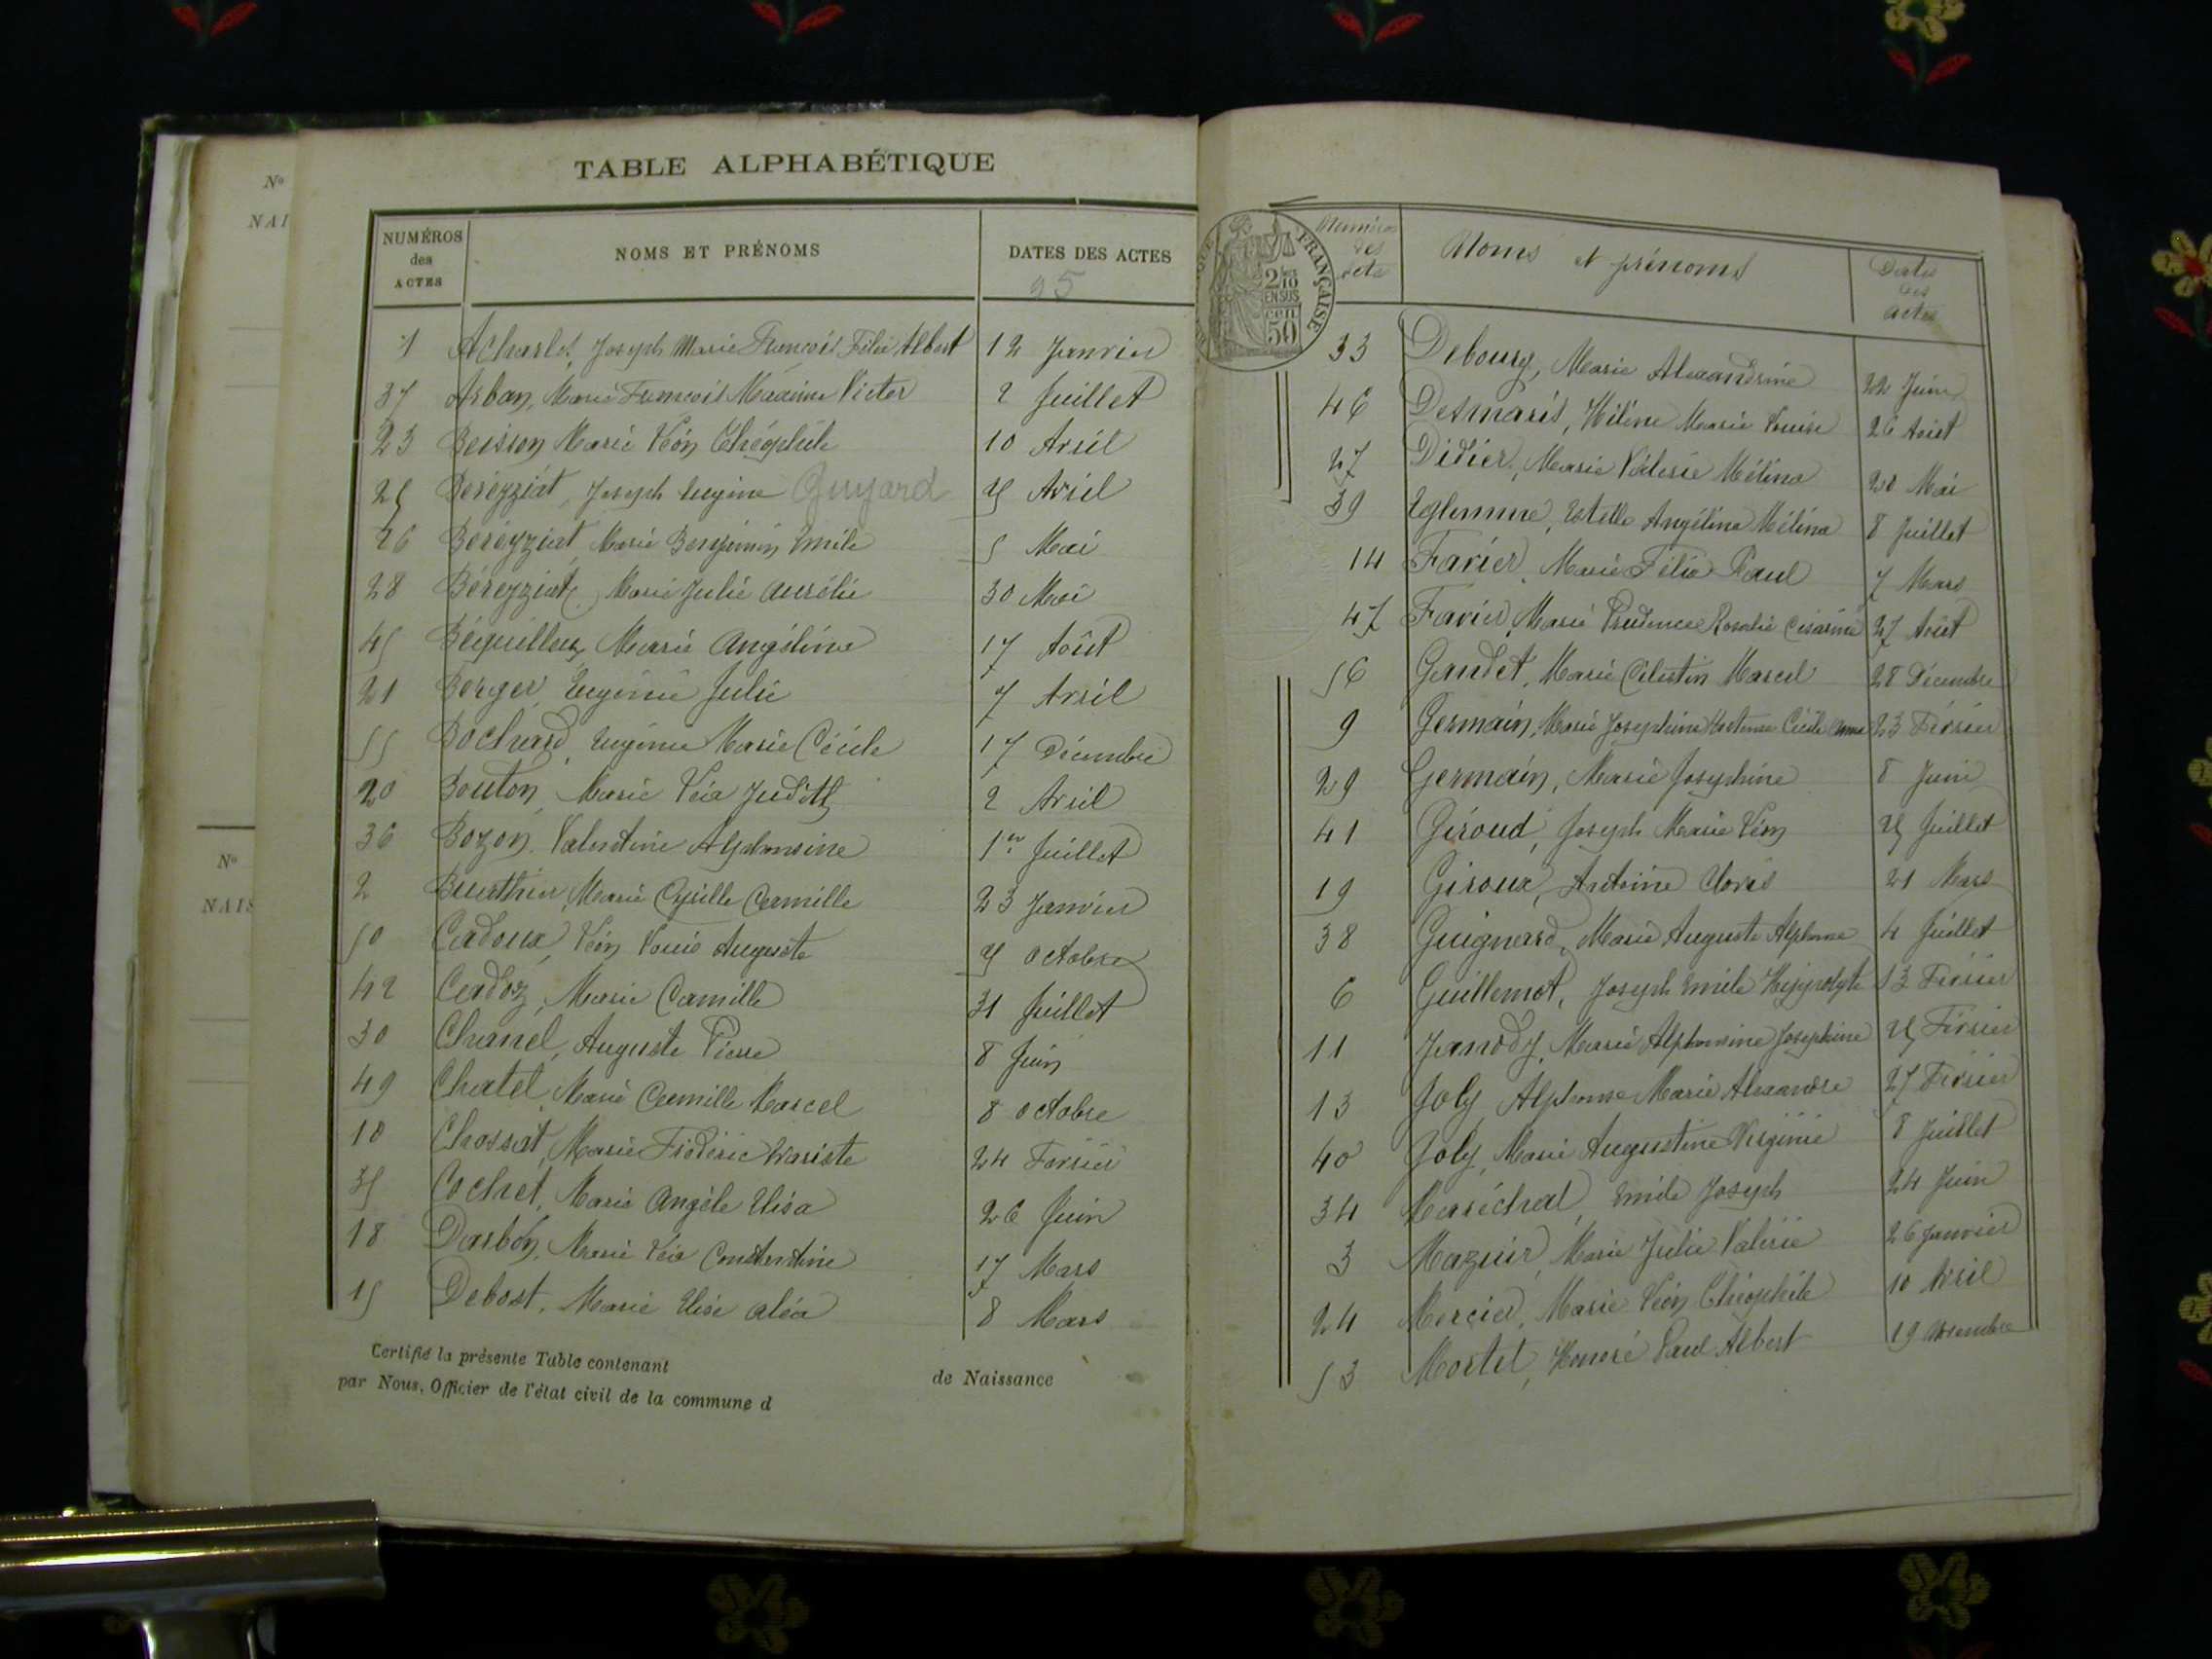 N°
NAI
N°
NAIS
TABLE ALPHABÉTIQUE
NUMÉROS des ACTES NOMS ET PRÉNOMS DATES DES ACTES
95
1 Acharlet, Joseph Marie François Félix Albert 12 Janvier
37 Arban, Marie François Maxime Victor 2 Juillet
23 Marie Léon Théophile 10 Avril
25 Béréyziat, Joseph Eugène Guyard 25 Avril
26 Béréyziat, Marie Benjamin Emile 5 Mai
28 Béréyziat, Marie Julie Aurélie 30 Mai
45 Marie Angéline 17 Août
21 Berger, Eugénie Julie 7 Avril
55 Bochard, Eugénie Marie Cécile 17 Décembre
20 Bouton, Marie Léa Judith 2 Avril
36 Bozon, Valentine Alphonsine 1er Juillet
2 Buathier, Marie Cyrille Camille 23 Janvier
50 Cadoux, Léon Louis Auguste 25 Octobre
42 Cadoz, Marie Camille 31 Juillet
30 Chanel, Auguste Pierre 8 Juin
49 Chatel, Marie Camille Marcel 8 Octobre
10 Chossat, Marie Frédéric Evariste 24 Février
35 Cochet, Marie Angèle Elisa 26 Juin
18 Darbon, Marie Léa Constantine 17 Mars
15 Debost, Marie Elise Aléa 8 Mars
Certifié la présente Table contenant de Naissance
par Nous, Officier de l'état civil de la commune d
FRANÇAISE
2/10 EN SUS
50
Numéros des actes Noms et prénoms Dates des actes
33 Debourg, Marie Alexandrine 22 Juin
46 Desmaris, Hélène Marie Louise 26 Août
27 Didier, Marie Valérie Mélina 20 Mai
39 Eglemme, Estelle Angélina Mélina 8 Juillet
14 Favier, Marie Félix Paul 7 Mars
47 Favier, Marie Prudence Rosalie Césarine 27 Août
56 Gaudet, Marie Célestin Marcel 28 Décembre
9 Germain, Marie Joséphine Hortense Cécile Anna 23 Février
29 Germain, Marie Joséphine 8 Juin
41 Giroud, Joseph Marie Léon 25 Juillet
19 Giroux, Antoine Clovis 21 Mars
38 Guignard, Marie Auguste Alphonse 4 Juillet
6 Guillemot, Joseph Emile Hippolyte 13 Février
11 Janody, Marie Alphonsine Joséphine 25 Février
13 Joly, Alphonse Marie Alexandre 27 Février
40 Joly, Marie Augustine Virginie 8 Juillet
34 Maréchal, Emile Joseph 24 Juin
3 Mazuir, Marie Julie Valérie 26 Janvier
24 Mercier, Marie Léon Théophile 10 Avril
53 Mortel, Honoré Paul Albert 19 Novembre